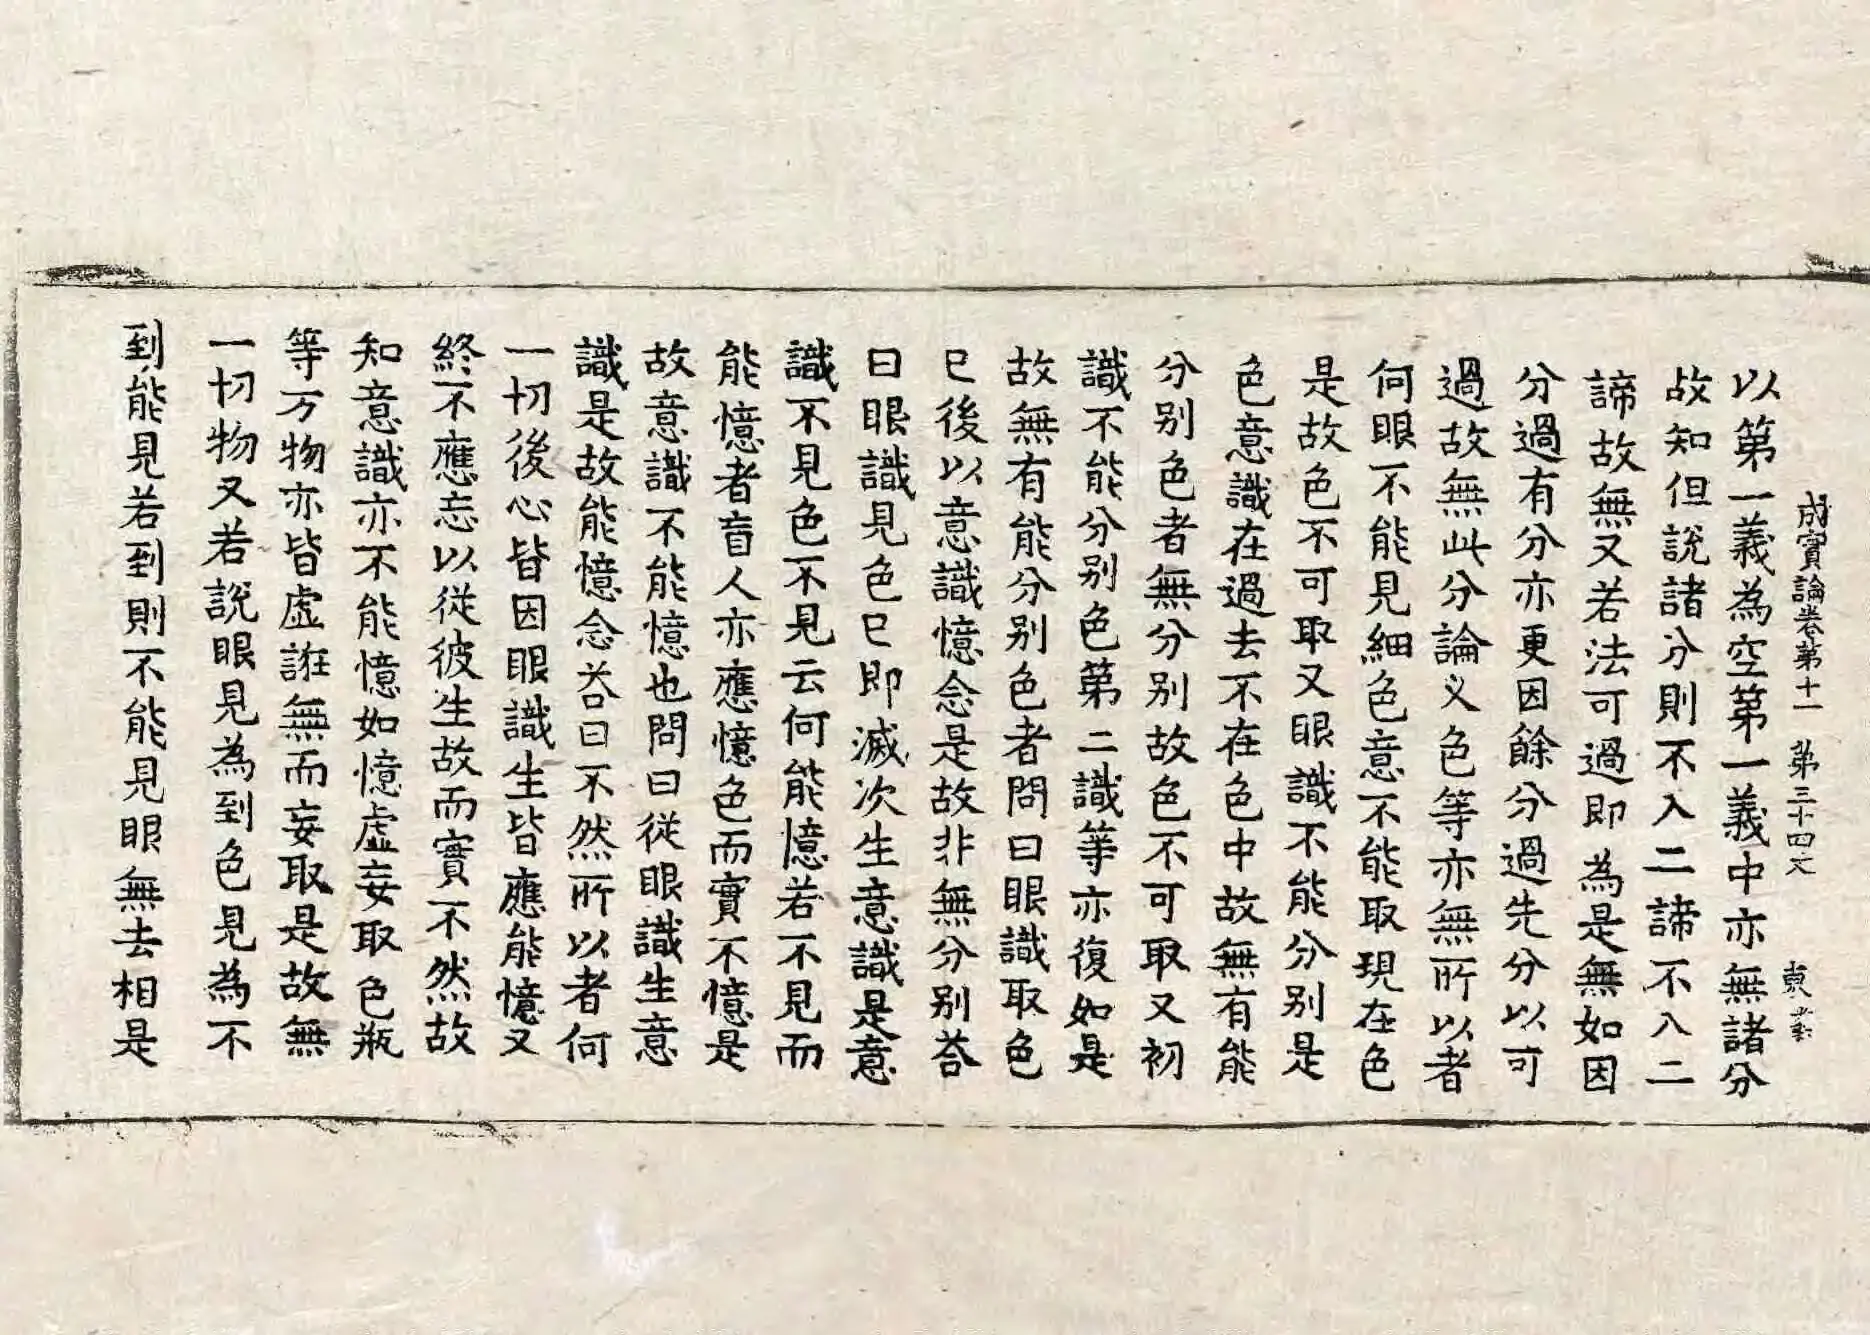 成實論卷第十一 第三十四丈 東 業
以第一義為空第一義中亦無諸分
故知但說諸分則不入二諦不八二
諦故無又若法可過即為是無如因
分過有分亦更因餘分過先分以可
過故無此分論义色等亦無所以者
何眼不能見細色意不能取現在色
是故色不可取又眼識不能分别是
色意識在過去不在色中故無有能
分别色者無分别故色不可取又初
識不能分别色第二識等亦復如是
故無有能分别色者問曰眼識取色
巳後以意識憶念是故非無分别荅
曰眼識見色巳即滅次生意識是意
識不見色不見云何能憶若不見而
能憶者盲人亦應憶色而實不憶是
故意識不能憶也問曰從眼識生意
識是故能憶念荅曰不然所以者何
一切後心皆因眼識生皆應能憶又
終不應忘以從彼生故而實不然故
知意識亦不能憶如憶虛妄取色瓶
等万物亦皆虛誑無而妄取是故無
一切物又若說眼見為到色見為不
到能見若到則不能見眼無去相是